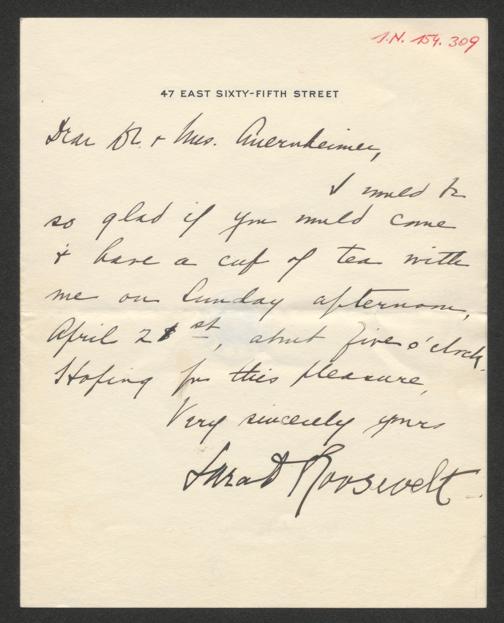 I.N. 154.309
47 EAST SIXTY-FIFTH STREET
Dear Dr. & Mrs. Auernheimer,
I would be
so glad if you would come
& have a cup of tea with
me on Sunday afternoon,
April 21st, about five o'clock.
Hoping for this pleasure,
Very sincerely yours
Sara D Roosevelt